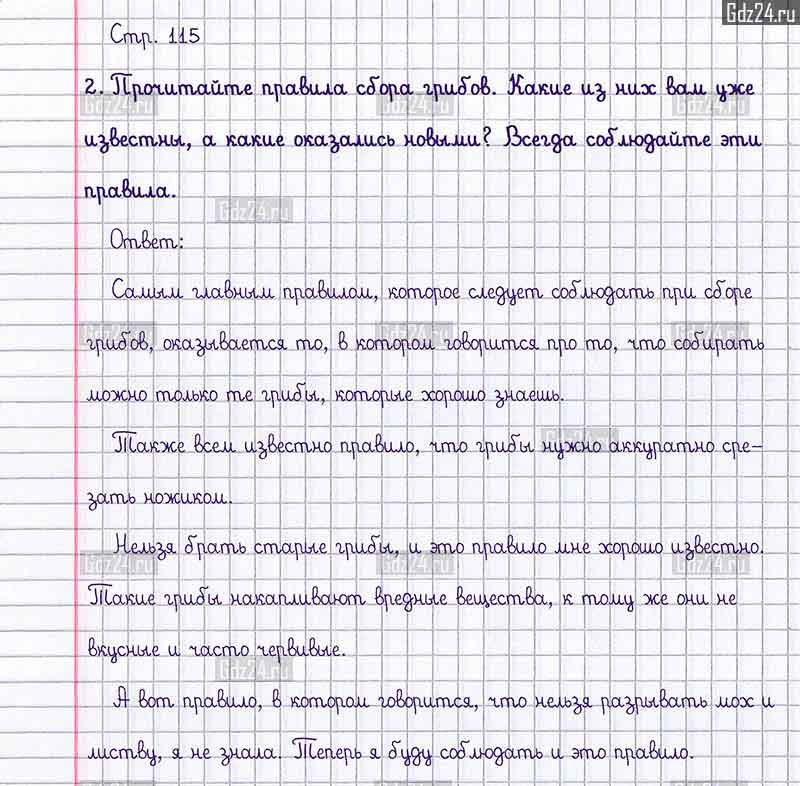 Gdz24.ru
Стр. 115
2. Прочитайте правила сбора грибов. Какие из них вам уже
известны, а какие оказались новыми? Всегда соблюдайте эти
правила.
Ответ:
Самым главным правилом, которое следует соблюдать при сборе
грибов, оказывается то, в котором говорится про то, что собирать
можно только те грибы, которые хорошо знаешь.
Также всем известно правило, что грибы нужно аккуратно сре-
зать ножиком.
Нельзя брать старые грибы, и это правило мне хорошо известно.
Такие грибы накапливают вредные вещества, к тому же они не
вкусные и часто червивые.
А вот правило, в котором говорится, что нельзя разрывать мох и
листву, я не знала. Теперь я буду соблюдать и это правило.